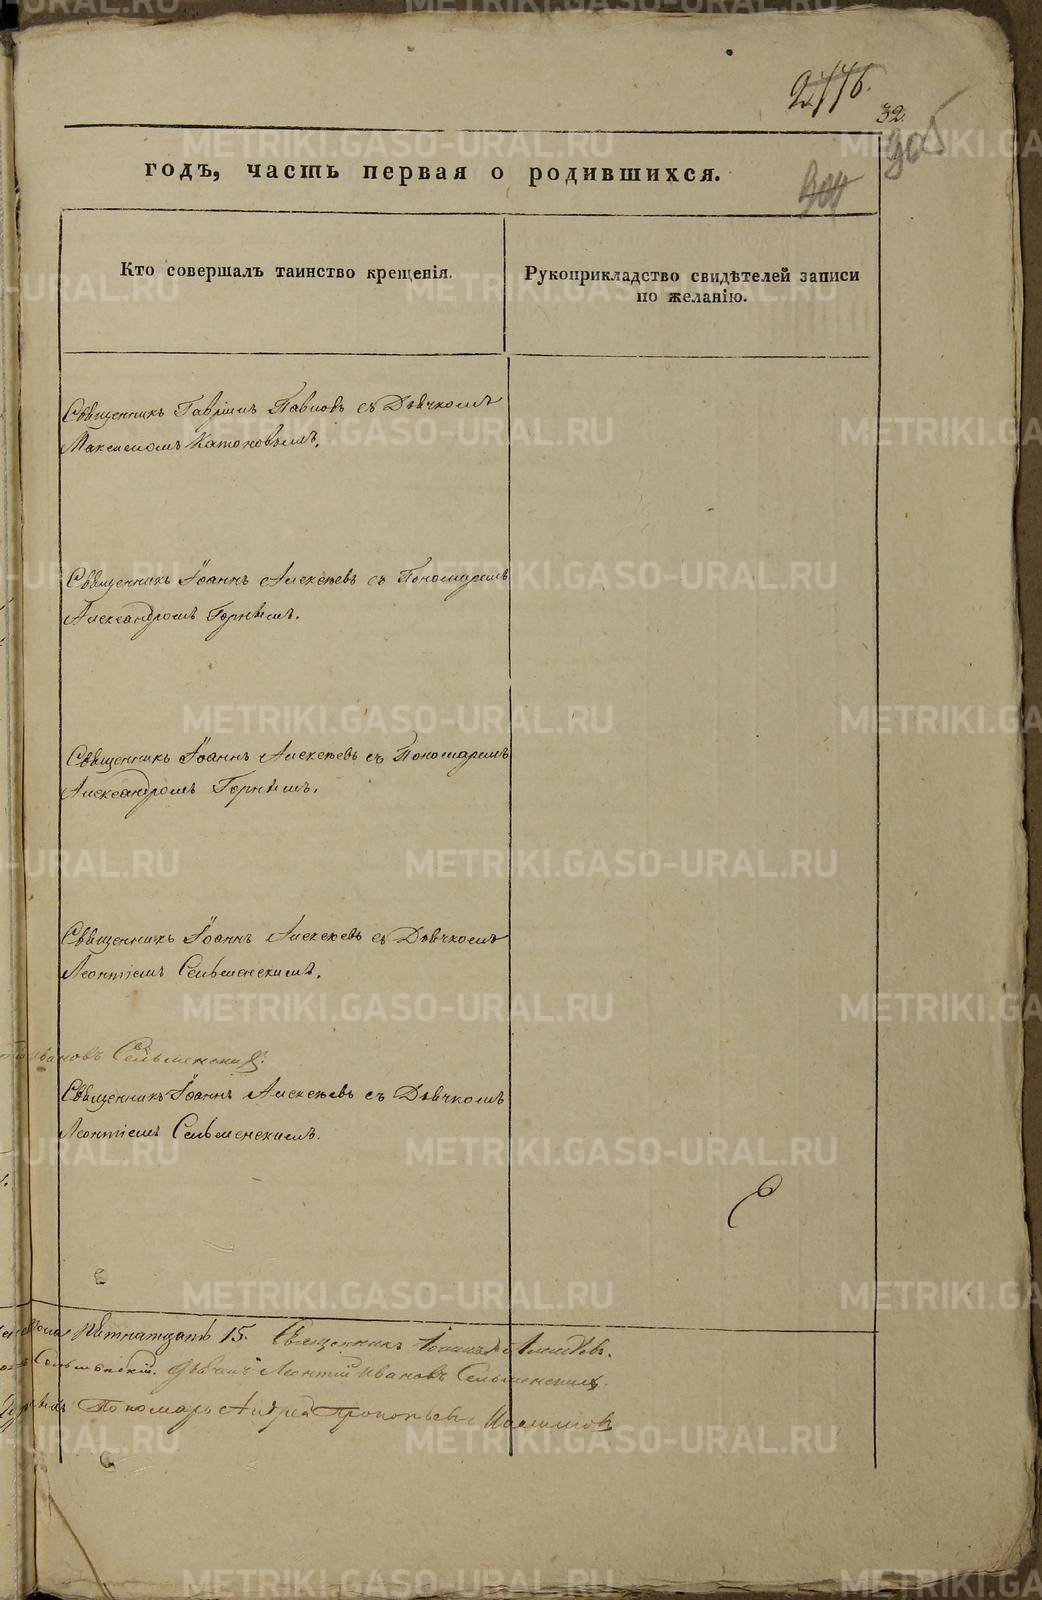 2776.
32.
905
904
годъ, часть первая о родившихся.
Кто совершалъ таинство крещенія.
Рукоприкладство свидѣтелей записи
по желанію.
Священникъ Гавріилъ Павловъ съ Дьячкомъ
Максимомъ Катоновымъ.
Священникъ Іоаннъ Алексѣевъ съ Пономаремъ
Александромъ Горнымъ.
Священникъ Іоаннъ Алексѣевъ съ Пономаремъ
Александромъ Горнымъ.
Священникъ Іоаннъ Алексѣевъ съ Дьячкомъ
Леонтіемъ Сельменскимъ.
Ивановъ Сельменскій.
Священникъ Іоаннъ Алексѣевъ съ Дьячкомъ
Леонтіемъ Сельменскимъ.
пятнатцать 15. Священникъ Іоаннъ Алексѣевъ.
Сельменскій. Дьячекъ Леонтій Ивановъ Сельменскій.
Пономарь Андрей Прокопьевъ
METRIKI.GASO-URAL.RU